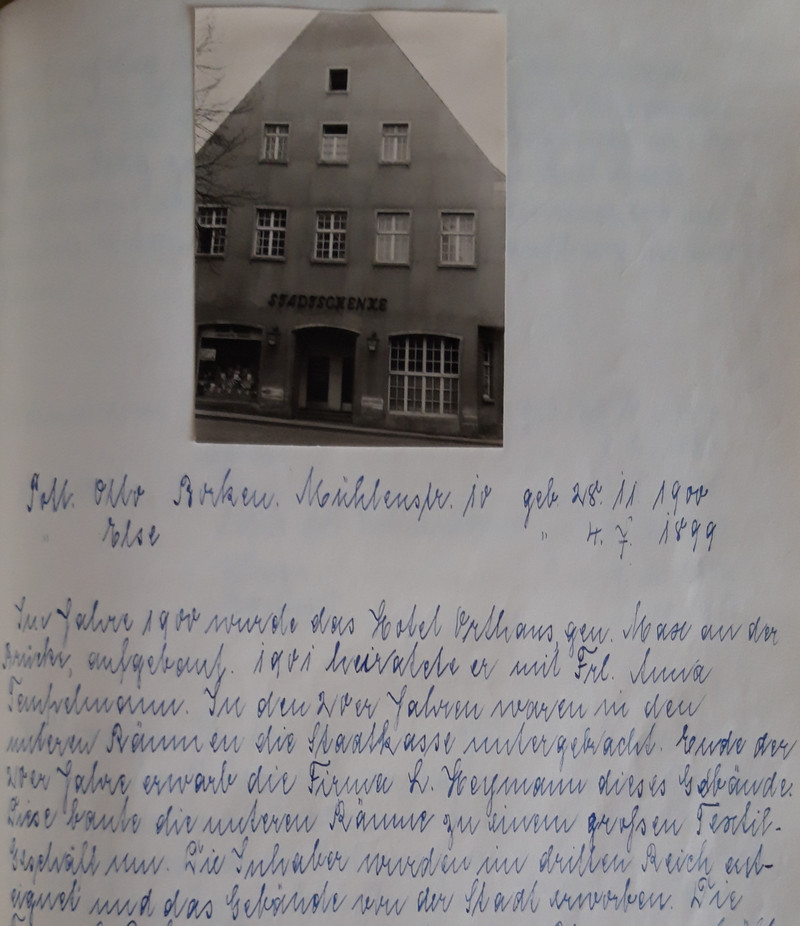 STADTSCHENKE
Otto Borken. Mühlenstr. 10 geb. 28. 11 1900
" Else " 4. 7. 1899
Im Jahre 1900 wurde das Hotel Orthaus, gen. Max an der
Brücke, aufgebaut. 1901 heiratete er mit Frl. Anna
In den 20er Jahren waren in den
unteren Räumen die Stadtkasse untergebracht. Ende der
20er Jahre erwarb die Firma L. Heymann dieses Gebäude.
Diese baute die unteren Räume zu einem großen Textil-
Geschäft um. Die Inhaber wurden im dritten Reich ent-
eignet und das Gebäude von der Stadt erworben. Die